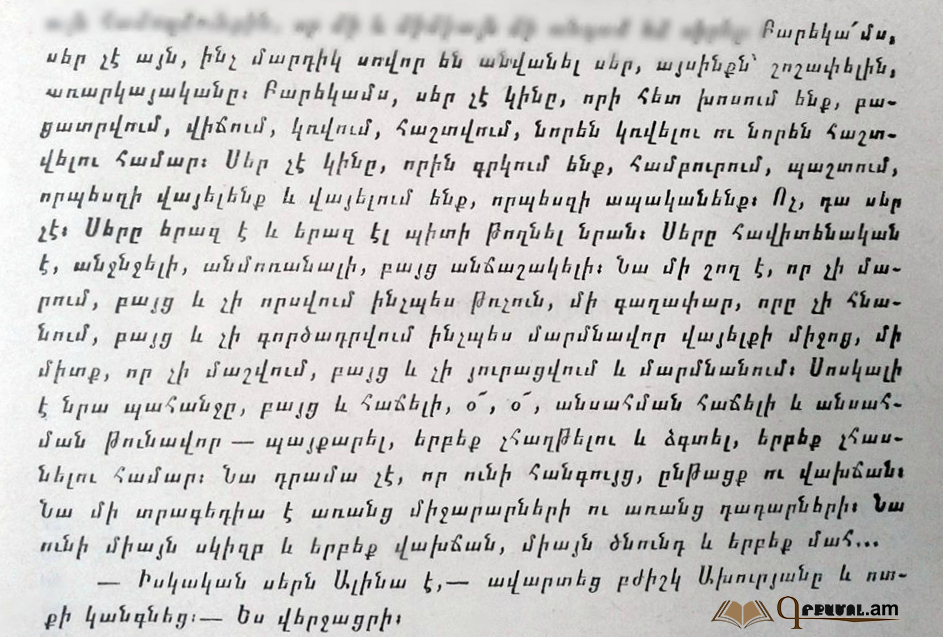 Բարեկա՛մս,
սեր չէ այն, ինչ մարդիկ սովոր են անվանել սեր, այսինքն՝ շոշափելին,
առարկայականը։ Բարեկամս, սեր չէ կինը, որի հետ խոսում ենք, բա-
ցատրվում, վիճում, կռվում, հաշտվում, նորեն կռվելու ու նորեն հաշտ-
վելու համար։ Սեր չէ կինը, որին գրկում ենք, համբուրում, պաշտում,
որպեսզի վայելենք և վայելում ենք, որպեսզի ապականենք։ Ոչ, դա սեր
չէ։ Սերը երազ է և երազ էլ պիտի թողնել նրան։ Սերը հավիտենական
է, անջնջելի, անմոռանալի, բայց անճաշակելի։ Նա մի շող է, որ չի մա-
րում, բայց և չի որսվում ինչպես թռչուն, մի գաղափար, որը չի հնա-
նում, բայց և չի գործադրվում ինչպես մարմնավոր վայելքի միջոց, մի
միտք, որ չի մաշվում, բայց և չի յուրացվում և մարմնանում։ Սոսկալի
է նրա պահանջը, բայց և հաճելի, օ՜, օ՜, անսահման հաճելի և անսահ-
ման թունավոր — պայքարել, երբեք չհաղթելու և ձգտել, երբեք չհաս-
նելու համար։ Նա դրամա չէ, որ ունի հանգույց, ընթացք ու վախճան։
Նա մի տրագեդիա է առանց միջարարների ու առանց դադարների։ Նա
ունի միայն սկիզբ և երբեք վախճան, միայն ծնունդ և երբեք մահ...
— Իսկական սերն Ալինա է,— ավարտեց բժիշկ Ախուրյանը և ոտ-
քի կանգնեց։— Ես վերջացրի։
Գրքամոլ.am